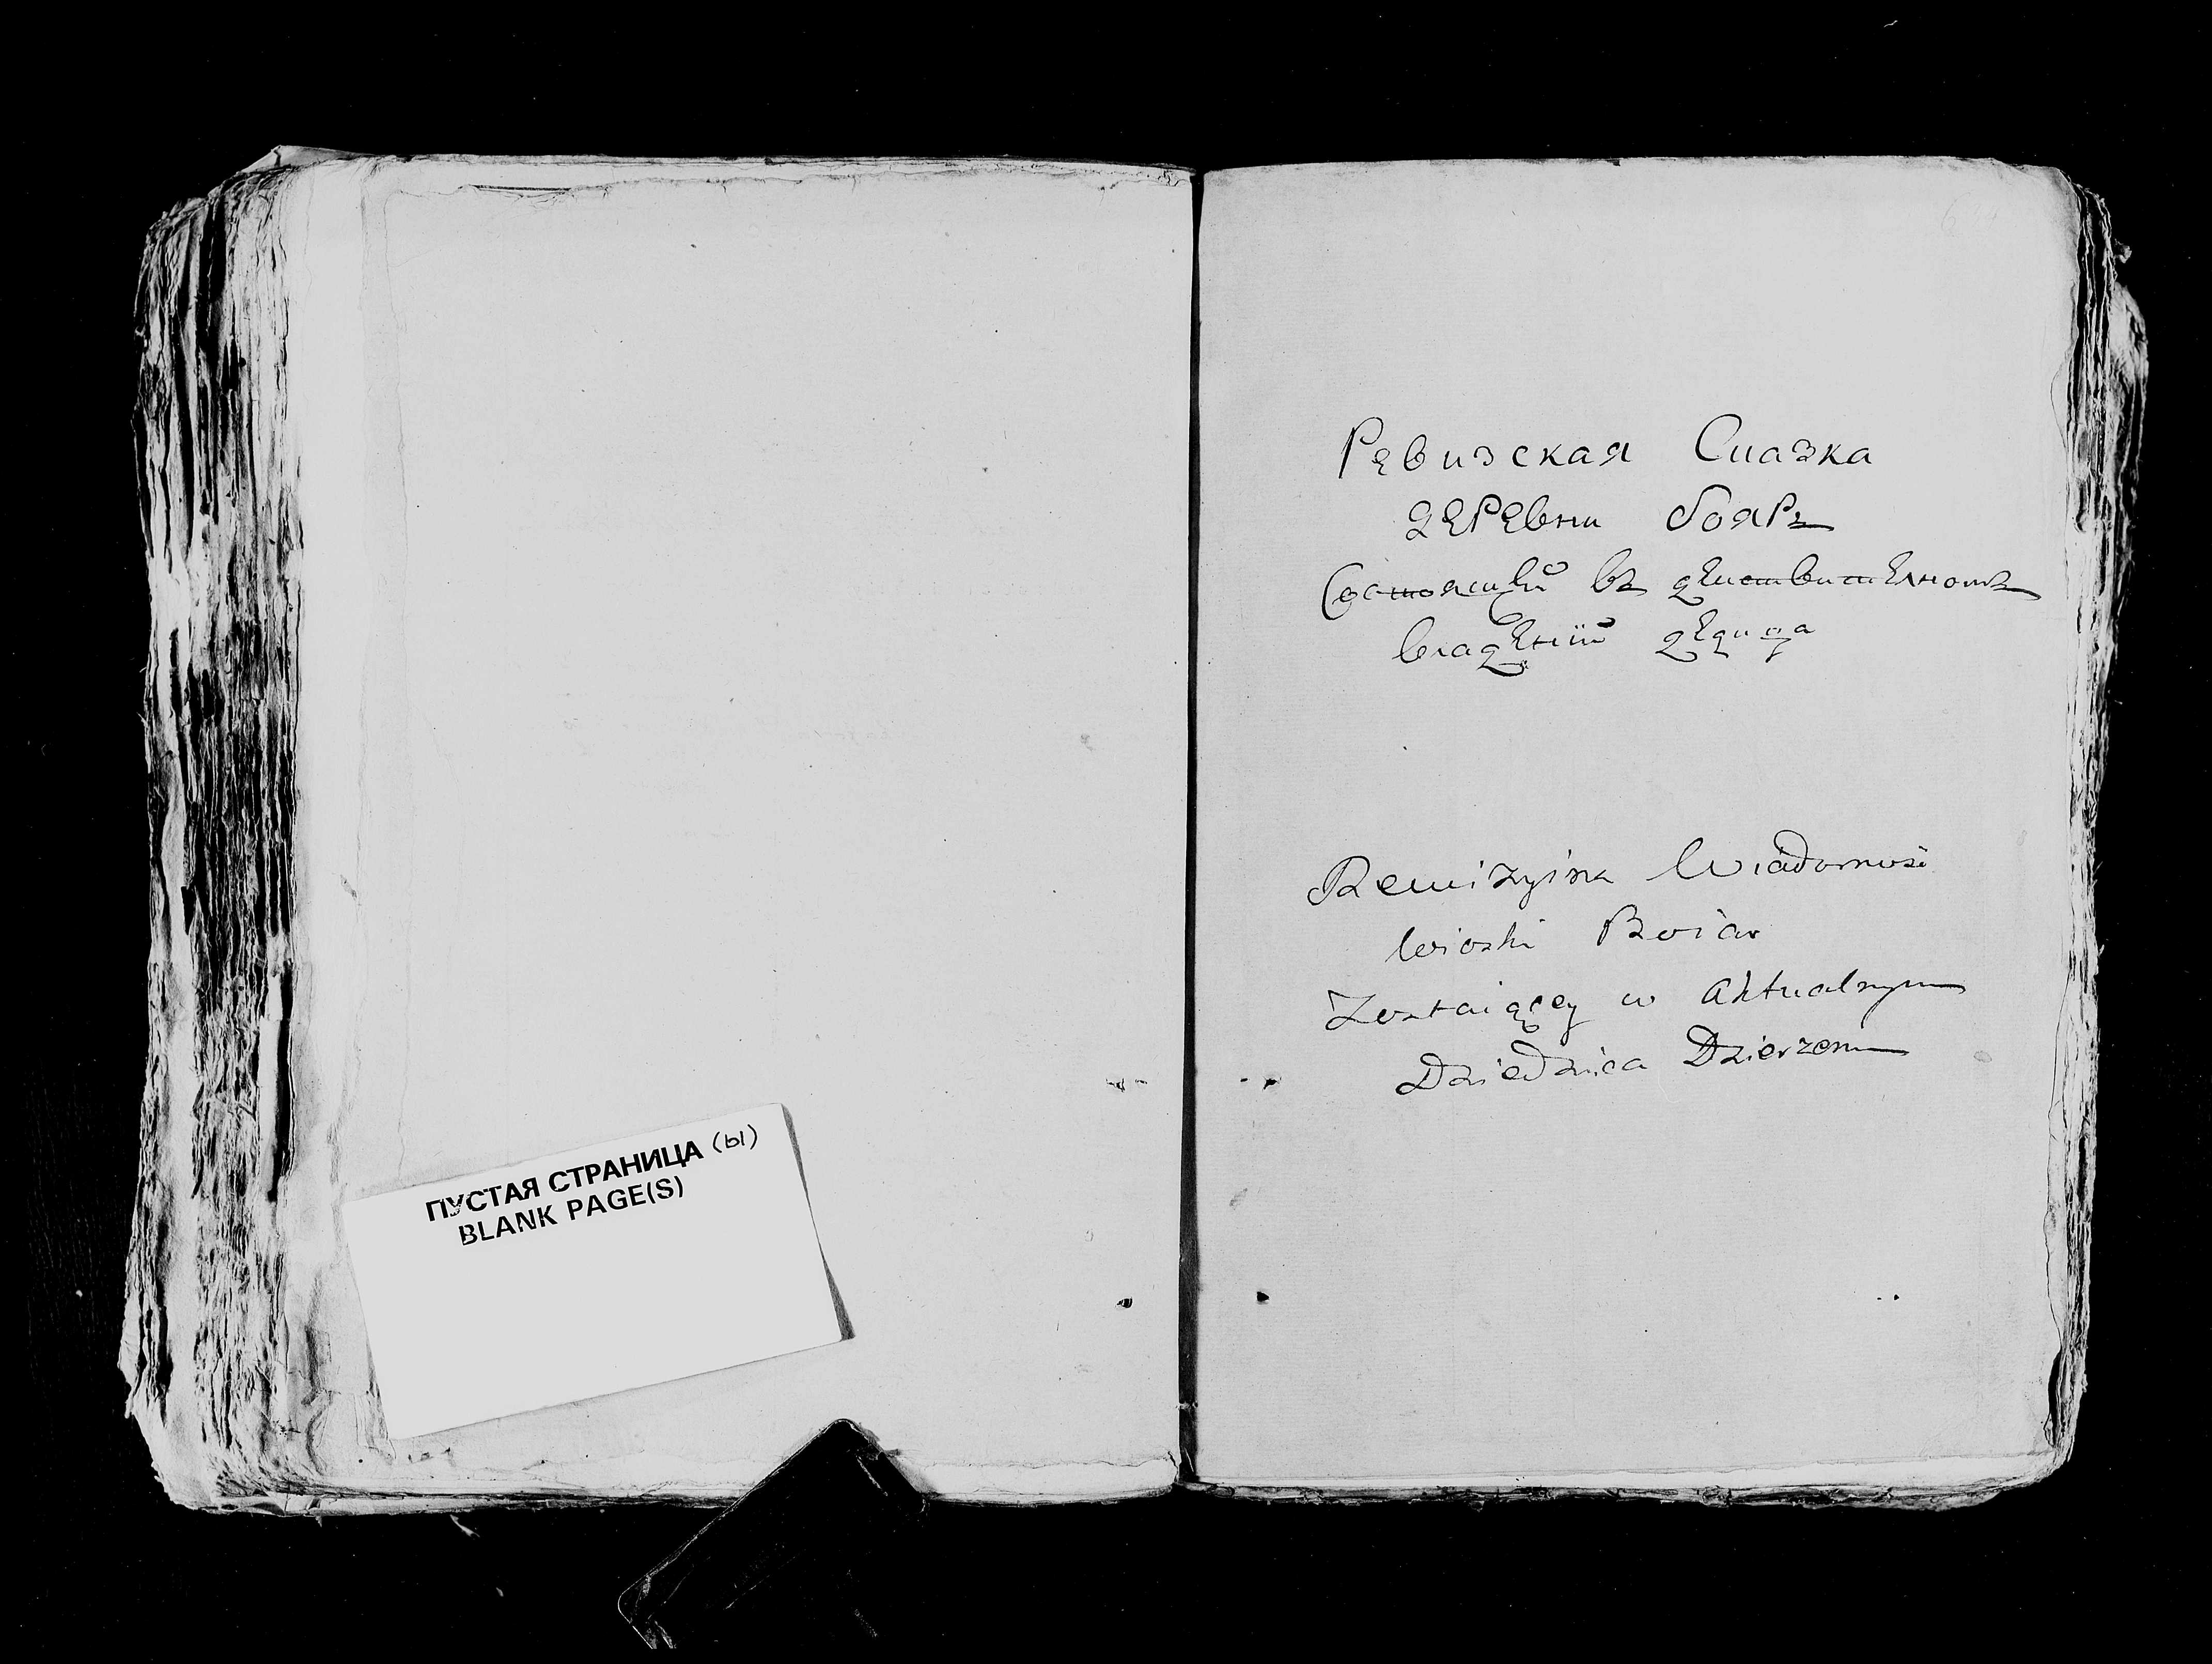 ПУСТАЯ СТРАНИЦА (ы)
BLANK PAGE(S)
Ревизская Сказка
деревни бояръ
Состоящей въ действителномъ
владении дедица
Rewizyina Wiadomość
Wioski Boiar
Zostaiącey w Aktualnym
Dziedzica Dzierzeniu